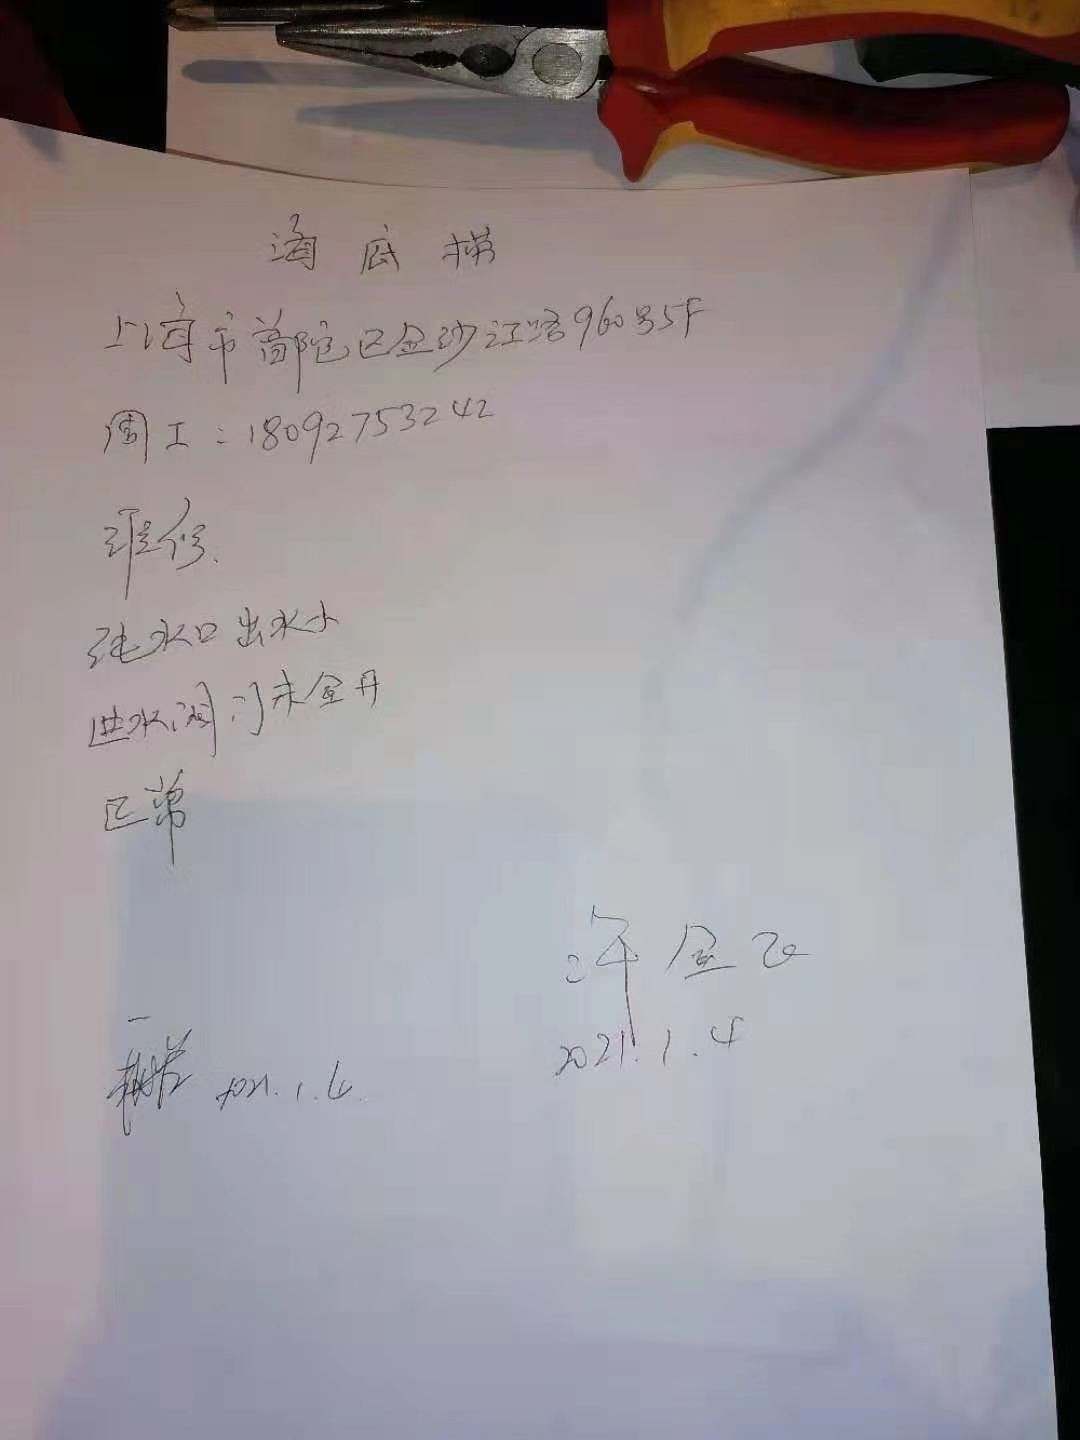 海底捞
上海市普陀区金沙江路960号5F
周工:18092753242
维修.
纯水口出水小
进水阀门未全开
正常
许金飞
2021.1.4
2021.1.4.